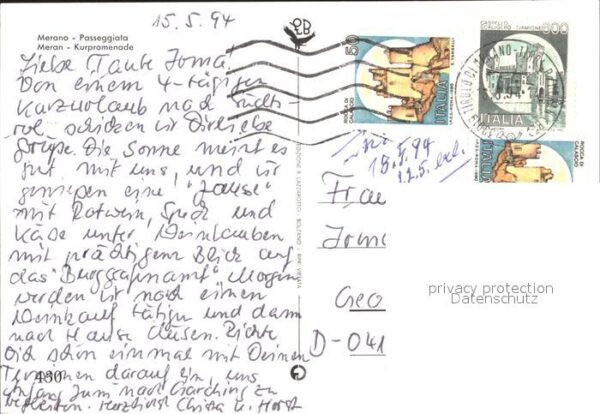 15.5.94
Merano - Passeggiata
Meran - Kurpromenade
Liebe Tante Irma!
Von einem 4-tägigen
Kurzurlaub nach Südti-
rol schicken wir Dir liebe
Grüße. Die Sonne meint es
gut mit uns, und wir
genießen eine "Jause"
mit Rotwein, Speck und
Käse unter Weinlauben
mit prächtigem Blick auf
das "Burggrafenamt". Morgen
werden wir noch einen
Weinkauf tätigen und dann
nach Hause düsen. Richte
Dich schon einmal mit Deinen
Terminen darauf ein, uns
Anfang Juni nach Garching zu
begleiten. Herzlichst Christa u. Horst
430
50
ROCCA DI
CALASCIO
ITALIA
600
ITALIA
ROCCA DI
CALASCIO
ITALIA
15.5.94
Frau
Irma
Geo
D-041
privacy protection
Datenschutz